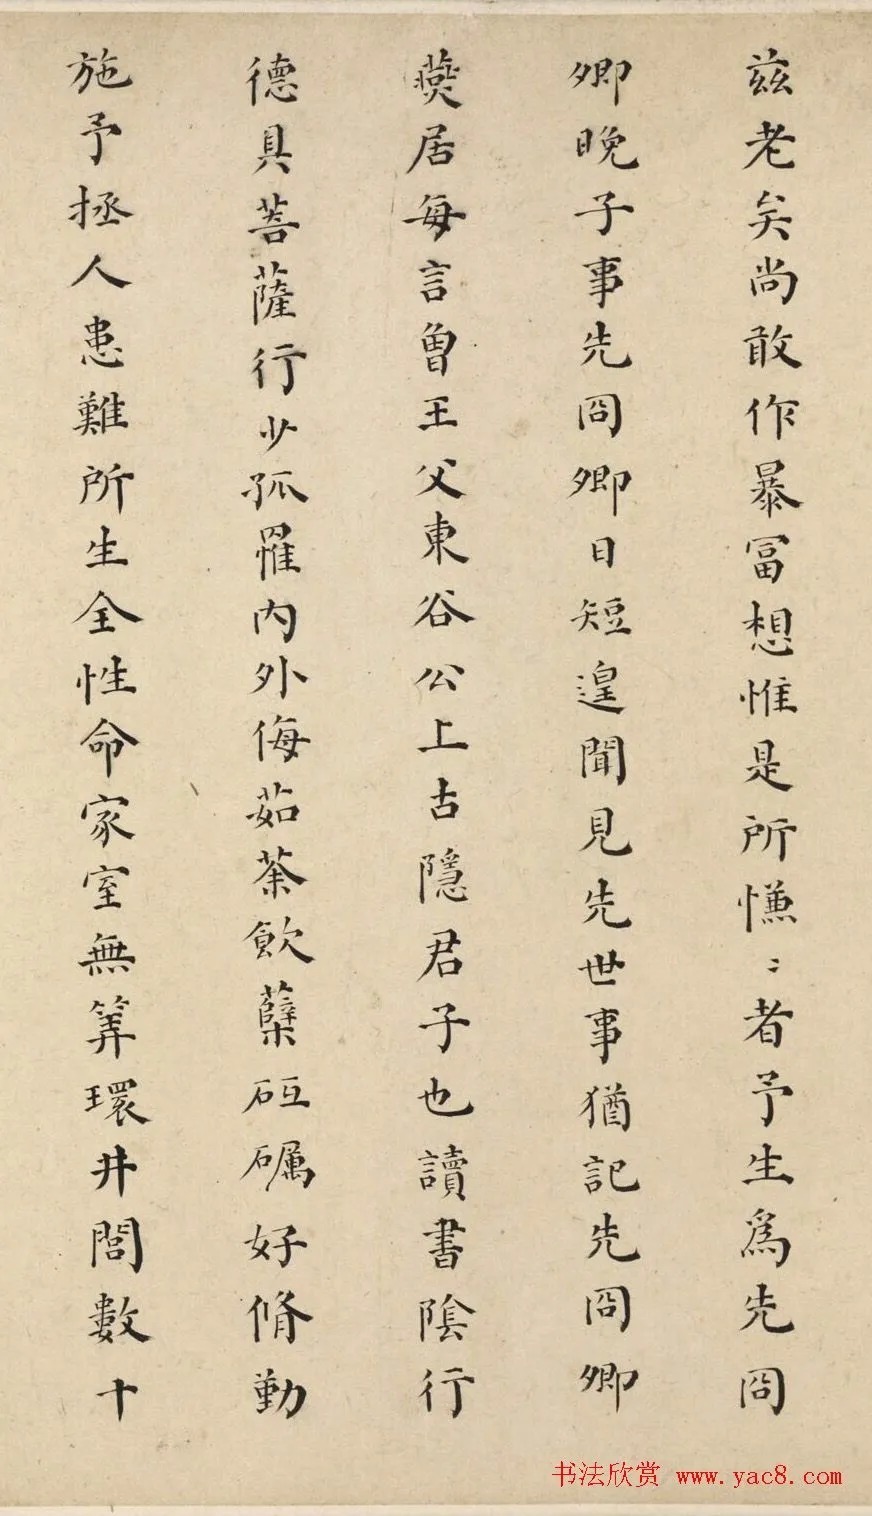 兹老矣尚敢作暴富想惟是所慊〻者予生為先冏
卿晚子事先冏卿日短遑聞見先世事猶記先冏卿
燕居每言曾王父東谷公上古隱君子也讀書陰行
德具菩薩行少孤罹內外侮茹荼飲蘗砥礪好脩勤
施予拯人患難所生全性命家室無筭環井閭數十
书法欣赏 www.yac8.com